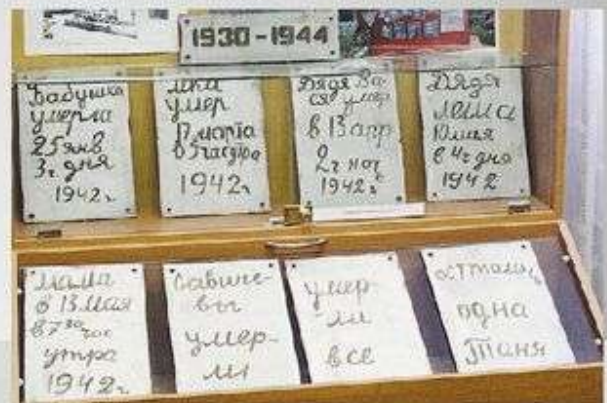 1930-1944
Бабушка
умерла
25 янв
3ч. дня
1942г
Лека
умер
17 марта
в 5 час утра
1942г
Дядя Ва-
ся умер
в 13 апр
2ч ноч
1942г
Дядя
Леша
10 мая
в 4ч дня
1942
Мама
в 13 мая
в 7 30
час
утра
1942г
Савиче-
вы
умер-
ли
умер-
ли
все
осталась
одна
Таня